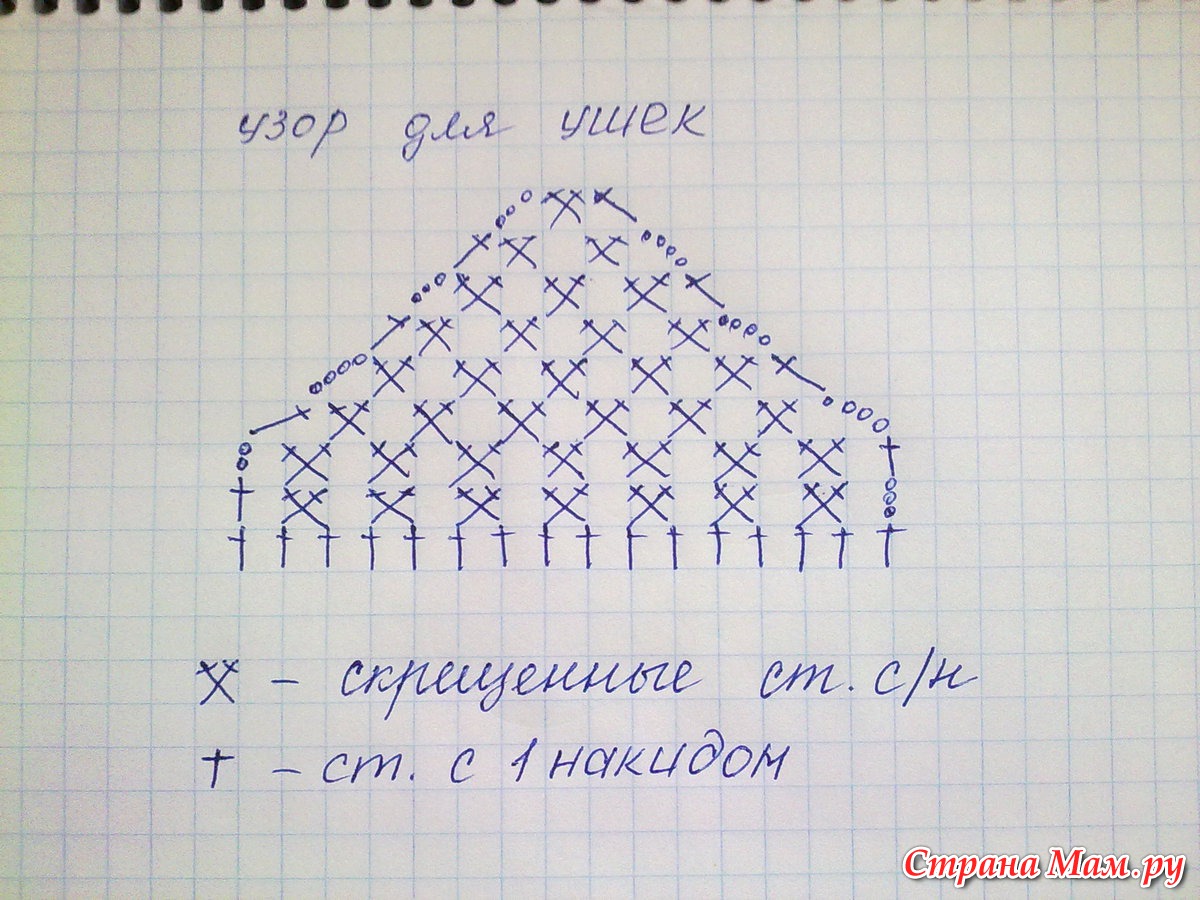 узор для ушек
– скрещенные ст. с/н
– ст. с 1 накидом
Страна Мам.ру